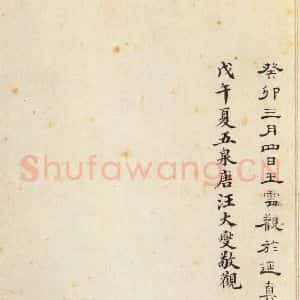 癸卯三月四日王雲觀於延真
戊午夏五泉唐汪大燮敬觀
Shufawang.CN